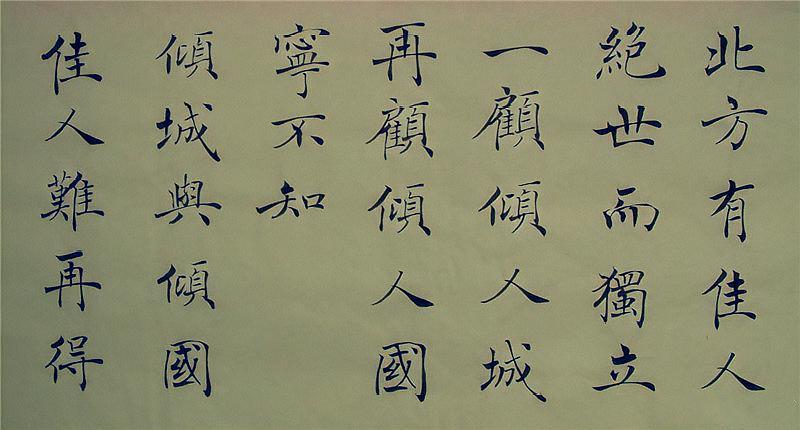 北方有佳人
絶世而獨立
一顧傾人城
再顧傾人國
寧不知
傾城與傾國
佳人難再得